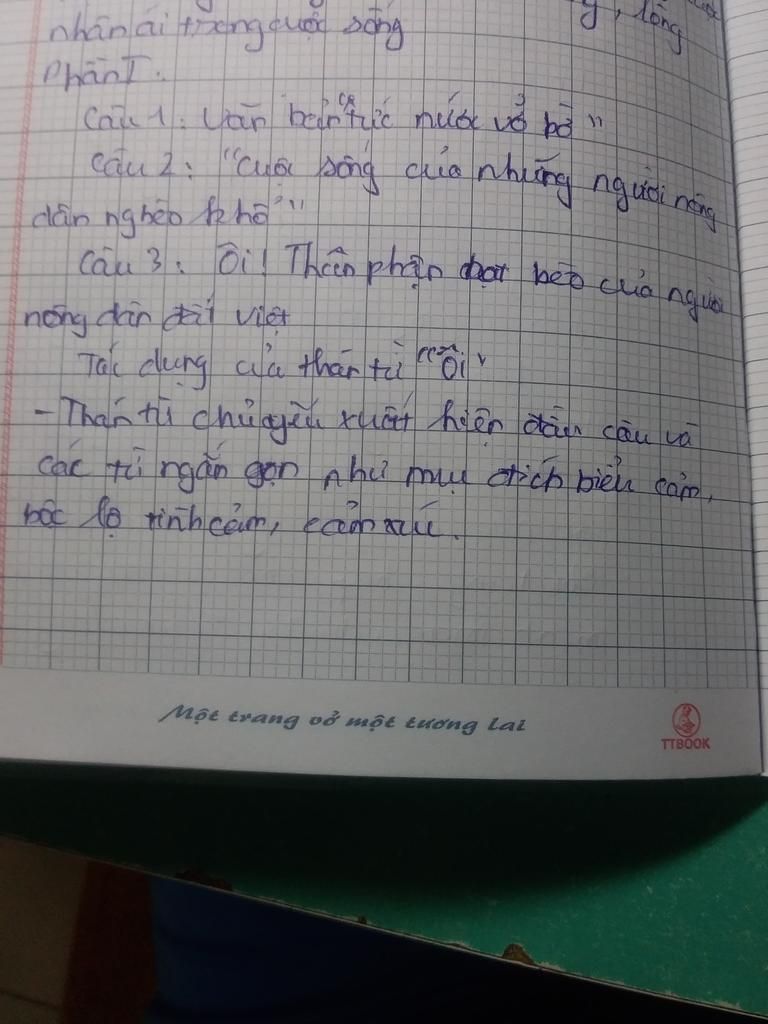 lòng
nhân ái trong cuộc sống
Phần I.
Câu 1: Văn bản "Tức nước vỡ bờ"
Câu 2: "Cuộc sống của những người nông
dân nghèo khổ"
Câu 3: Ôi! Thân phận bọt bèo của người
nông dân đất việt
Tác dụng của thán từ "Ôi"
- Thán từ chủ yếu xuất hiện đầu câu và
các từ ngắn gọn như mục đích biểu cảm,
bộc lộ tình cảm, cảm xúc.
Một trang vở một tương lai
TTBOOK